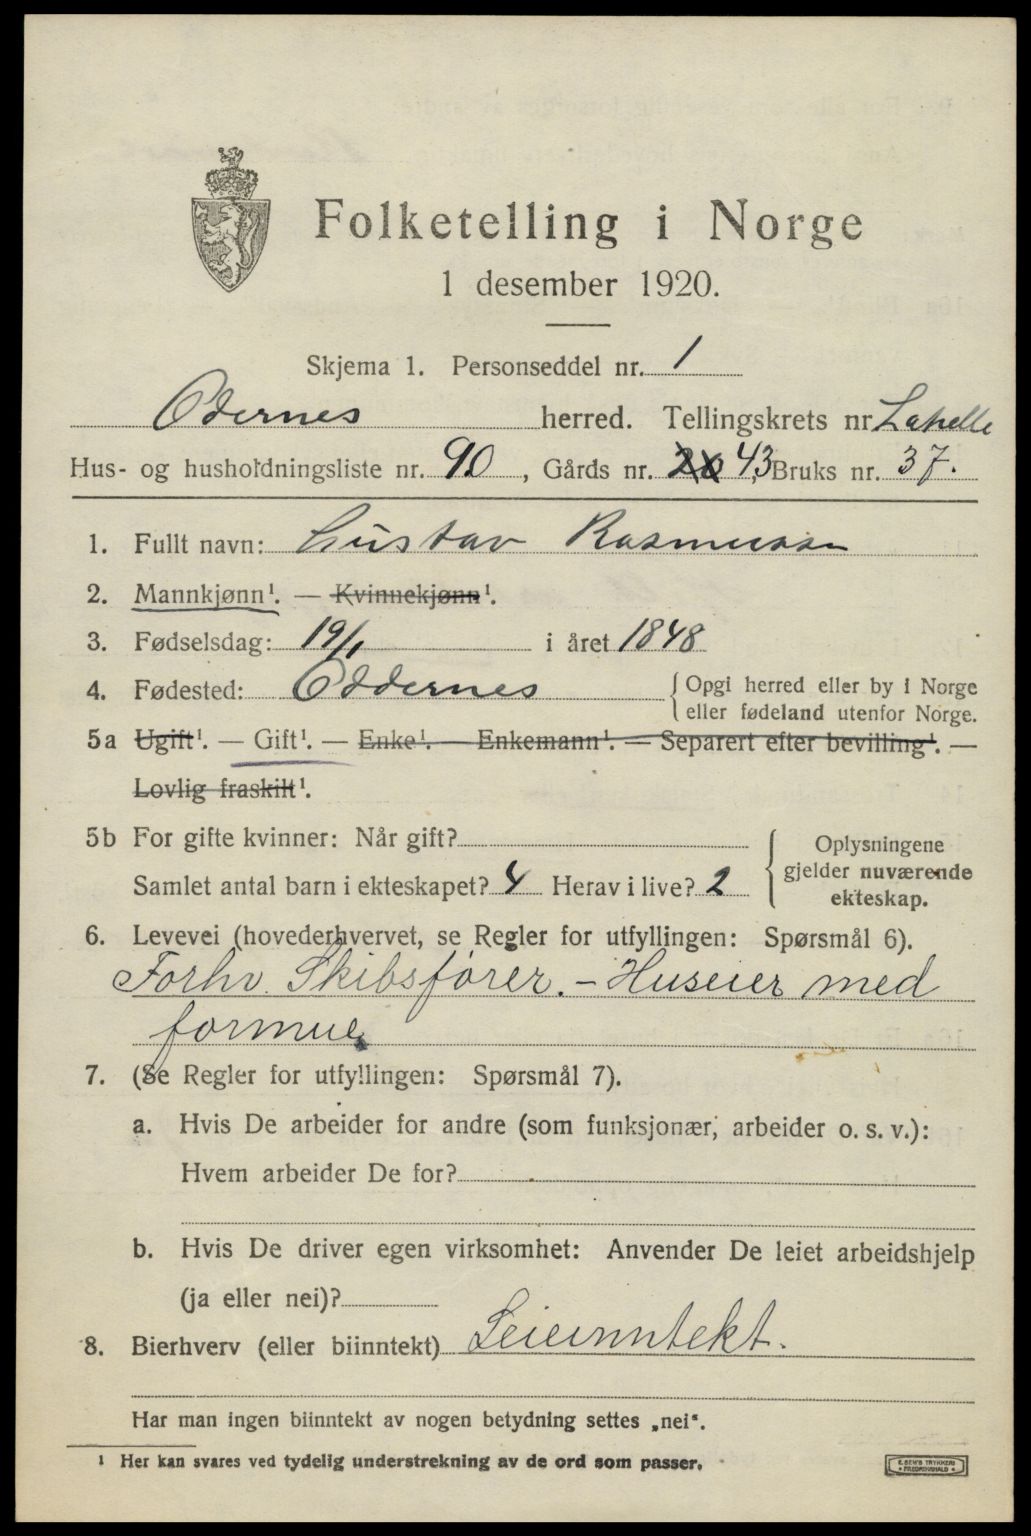 Folketelling i Norge
1 desember 1920.
Skjema 1. Personseddel nr. 1
Odernes herred. Tellingskrets nr. Lahelle
Hus- og husholdningsliste nr. 90, Gårds nr. 26 43, Bruks nr. 37.
1. Fullt navn: Gustav Rasmussen
2. Mannkjønn¹. — Kvinnekjønn¹.
3. Fødselsdag: 19/1 i året 1848
4. Fødested: Oddernes { Opgi herred eller by i Norge
eller fødeland utenfor Norge.
5a Ugift¹. — Gift¹. — Enke¹. — Enkemann¹. — Separert efter bevilling¹. —
Lovlig fraskilt¹.
5b For gifte kvinner: Når gift?
Samlet antal barn i ekteskapet? 4 Herav i live? 2
{ Oplysningene
gjelder nuværende
ekteskap.
6. Levevei (hovederhvervet, se Regler for utfyllingen: Spørsmål 6).
Forhv. Skibsfører. - Huseier med
formue
7. (Se Regler for utfyllingen: Spørsmål 7).
a. Hvis De arbeider for andre (som funksjonær, arbeider o. s. v.):
Hvem arbeider De for?
b. Hvis De driver egen virksomhet: Anvender De leiet arbeidshjelp
(ja eller nei)?
8. Bierhverv (eller biinntekt) Leieinntekt.
Har man ingen biinntekt av nogen betydning settes „nei“.
¹ Her kan svares ved tydelig understrekning av de ord som passer.
E. SEM'S TRYKKERI
FREDRIKSHALD